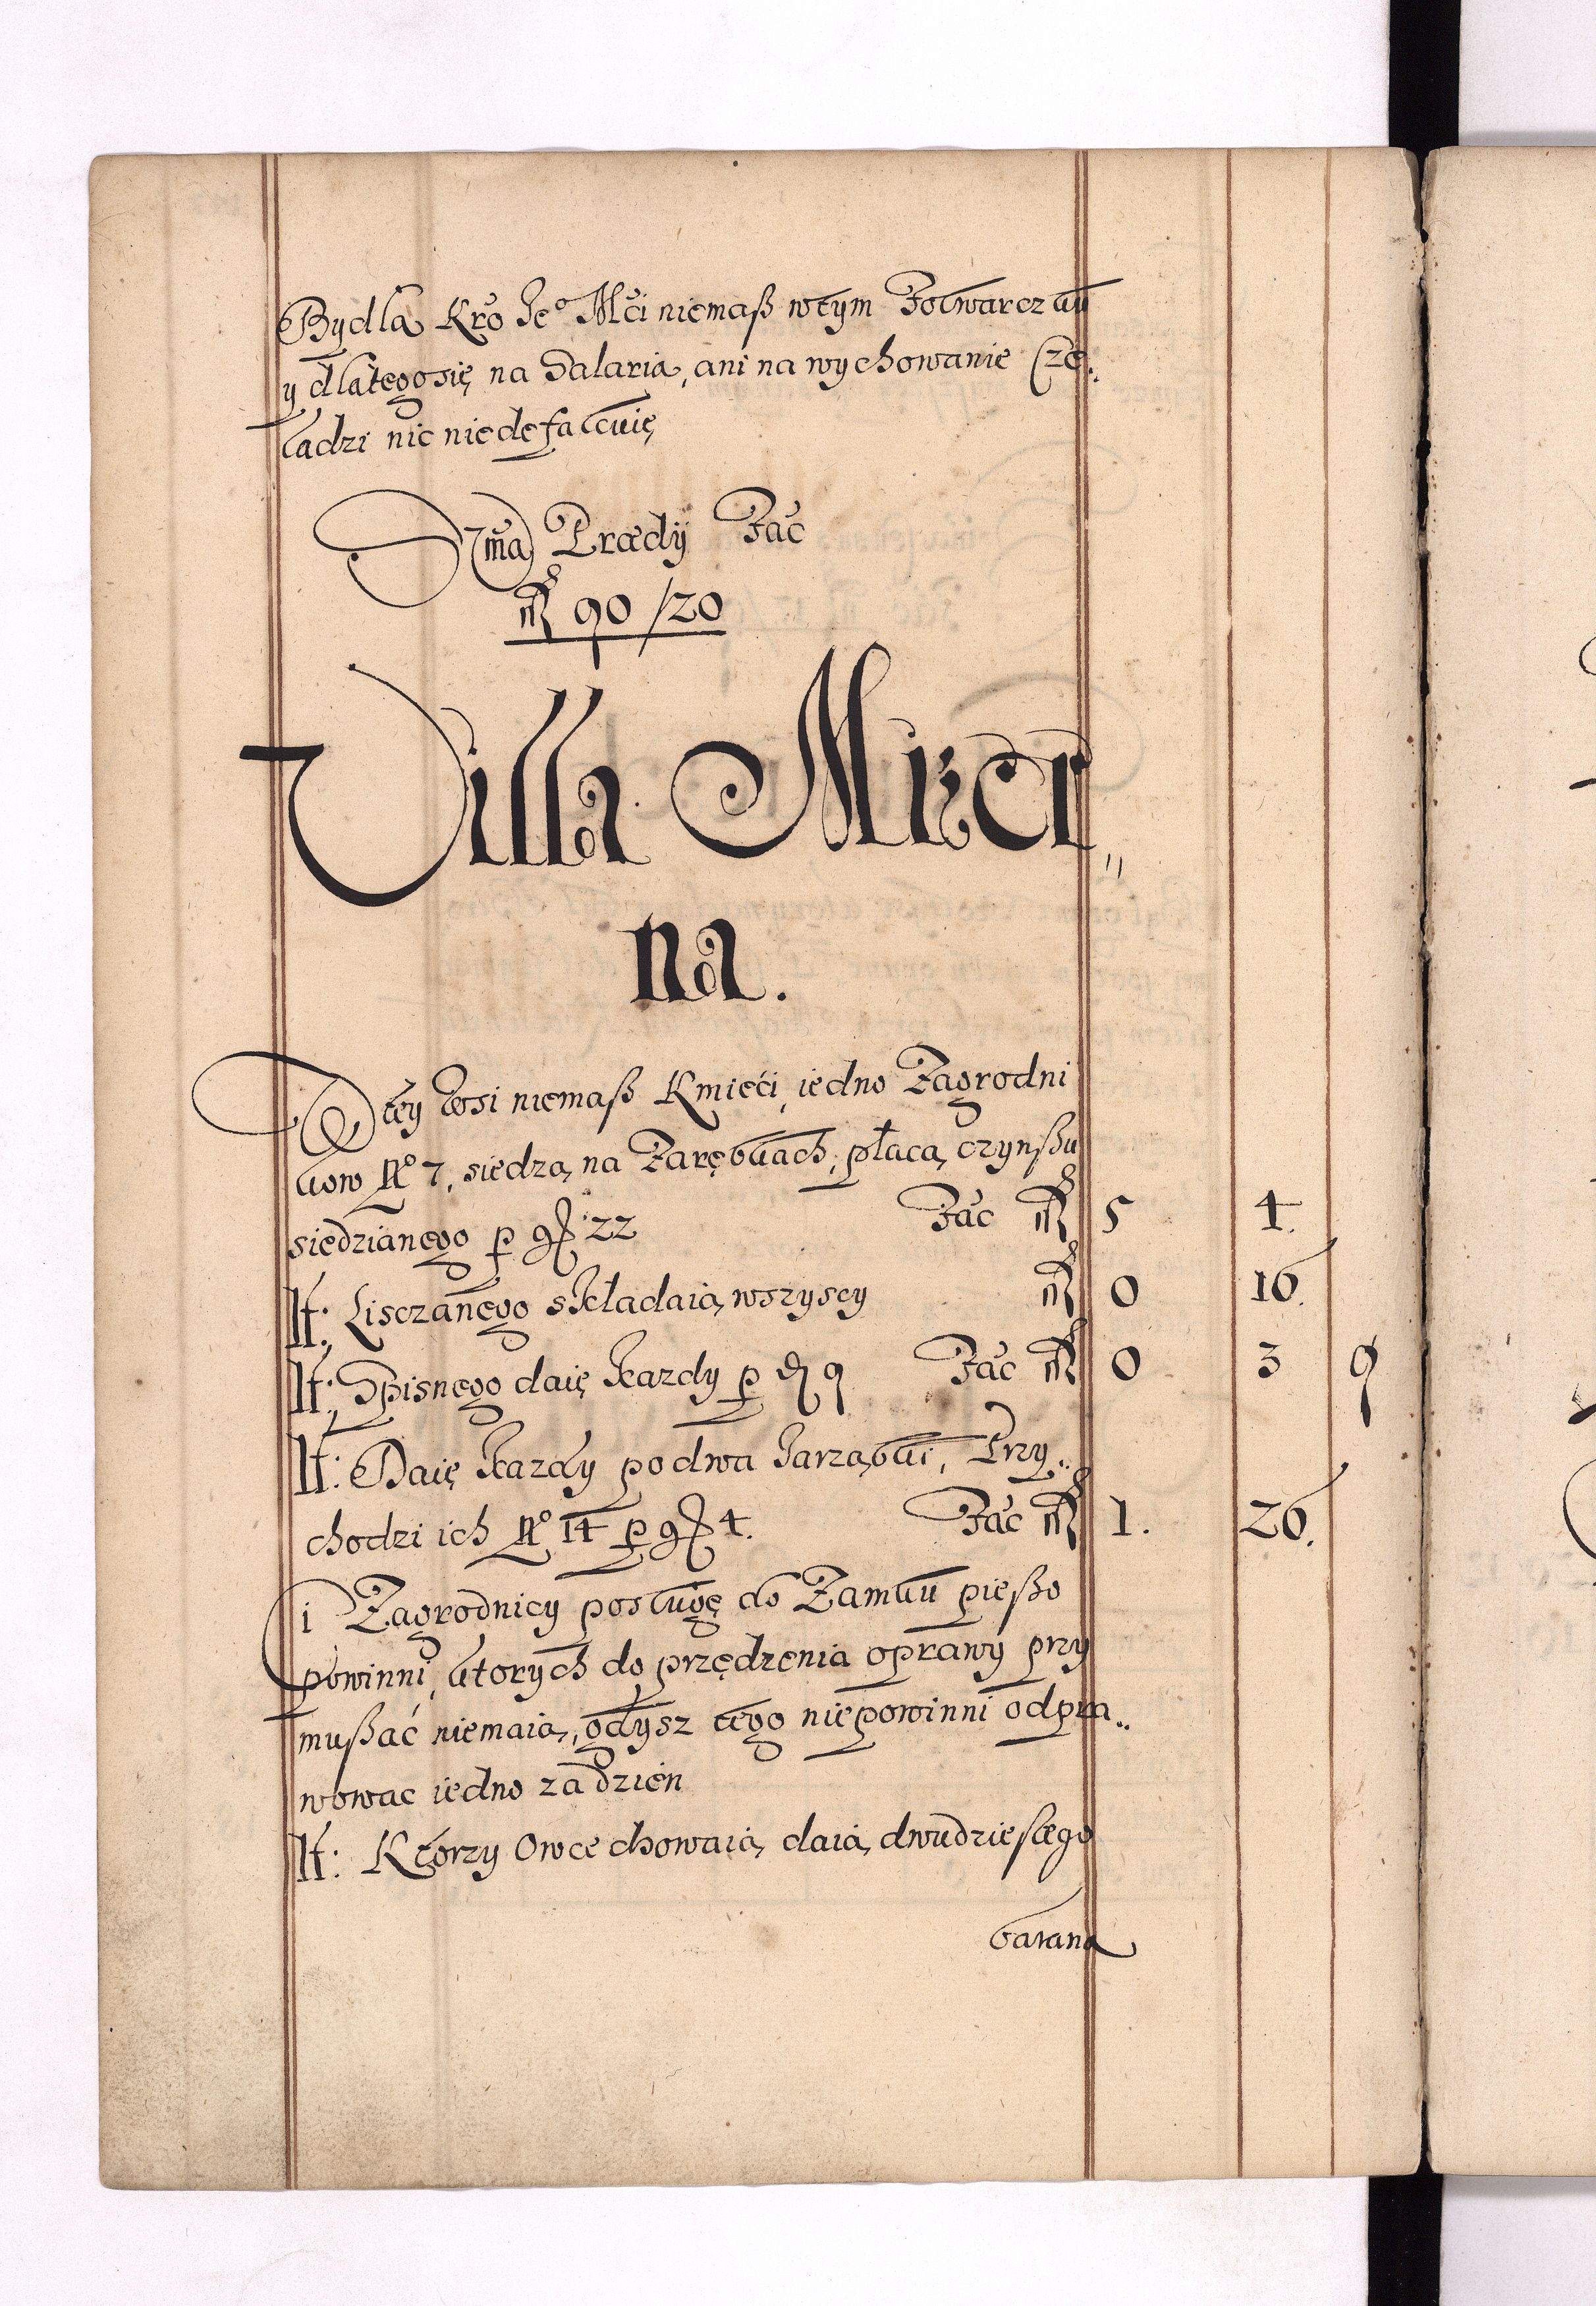 Bydła Kro Jeº Mći niemaß wtym Folwarczku
y dlategosię na Salaria, ani na wychowanie Cze:
ladzi nic niedefalcuię
Sma Prædÿ Fac
fl 90/20
Villa Mizer„
na.
W tey Wsi niemaß Kmieći, iedno Zagrodni
kow Nº 7, siedzą na Zarębkach, płacą czynßu
siedzianego p gß 22 Fać fl 5 4.
It: Lisczanego składaią wszyscy fl 0 16.
It: Spisnego daię kazdy p đ 9 Fać fl 0 3 9
It: Daię kazdy podwa Jarząbki, Przy„
chodzi ich Nº 14 p gß 4. Fać fl 1. 26.
Ci Zagrodnicy posługę do Zamku pießo
powinni, ktorych do przędzenia oprawy przy
mußać niemaią, gdysz tego niepowinni odpra„
wowac iedno za dzień
It: Ktorzy Owce chowaią daią dwudziestego
barana